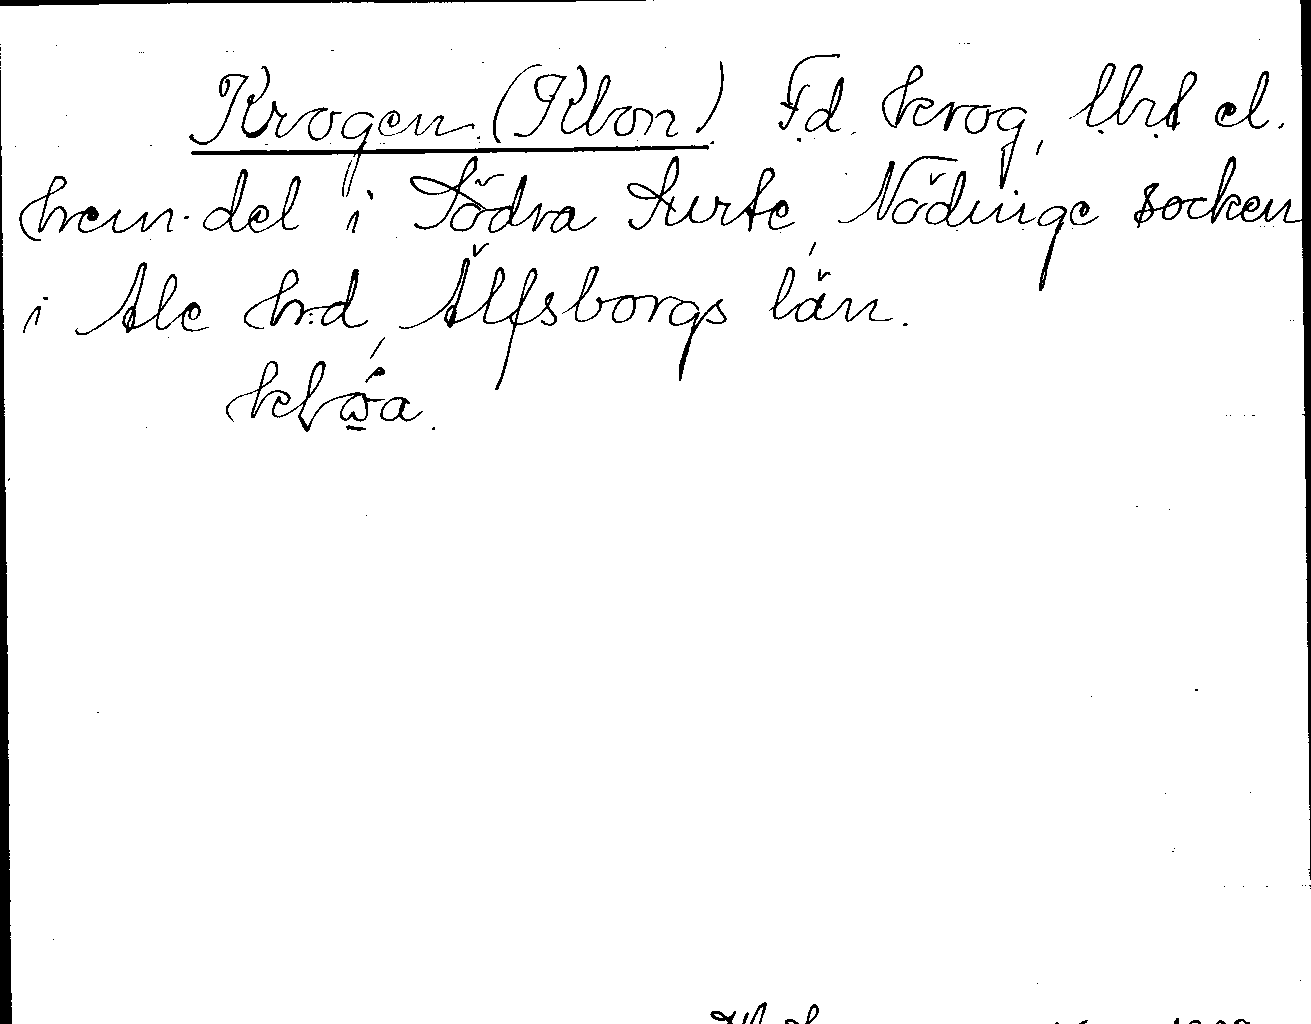 Krogen (Klon) Fd. krog, l.h.t el.
hem. del i Södra Surte, Nödinge socken
i Ale h.d, Älfsborgs län.